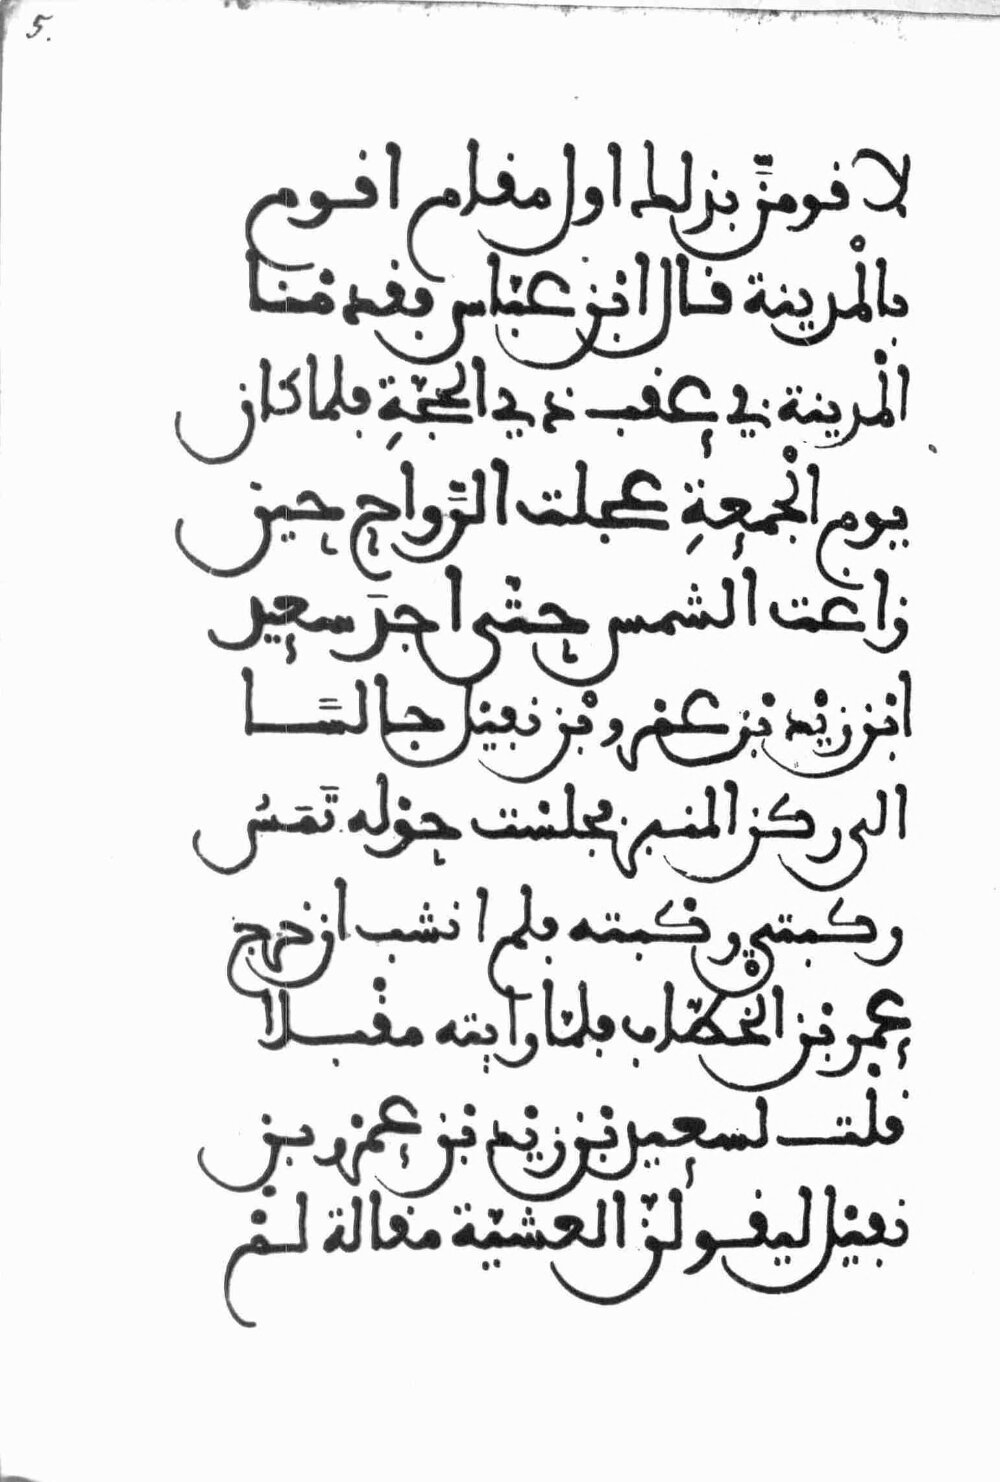 5.
لاقومنّ بذلك اول مقام اقوم
بالْمدينة قال ابن عبّاس فقدمْنا
الْمدينة في عِقب ذي الحجّةِ فلما كان
يوم الْجمعةِ عجلت الرّواح حين
زاغت الشمس حتّى اجدَ سعيد
ابن زيْد بْن عمرو بْن نفيْل جالسًا
الى ركن المنبر فجلسْت حوْله تَمَسُّ
ركبتي ركبته فلم انشب ان خرج
عمر بْن الخطّاب فلمّا رايته مقْبلا
قلْت لسعيد بْن زيْد بْن عمْرو بن
نفيْل ليقولنّ العشيّة مقالة لمْ